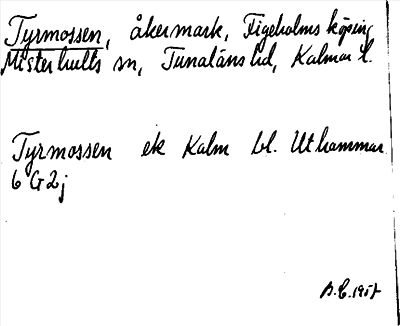 Tyrmossen, åkermark, Figeholms köping
Misterhults sn, Tunaläns hd, Kalmar l.
Tyrmossen ek Kalm bl. Uthammar
6 G 2 j
B.E. 1957